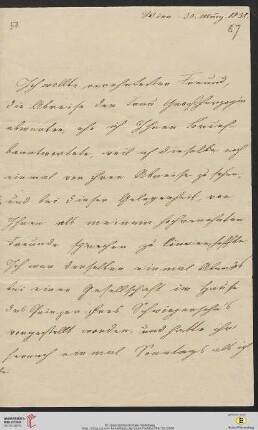 Wien. 30. März. 1831.
87
Ich wollte, verehrtester Freund,
die Abreise der Frau Großherzogin
abwarten, ehe ich Ihren Brief
beantwortete, weil ich dieselbe noch
einmal vor ihrer Abreise zu sehen,
und bei dieser Gelegenheit von
Ihnen als meinem hochverehrten
Freunde sprechen zu können hoffte.
Ich war derselben einmal Abends
bei einer Gesellschaft im Hause
des Prinzen
vorgestellt worden, und hatte sie
hernach einmal Sonntags als ich